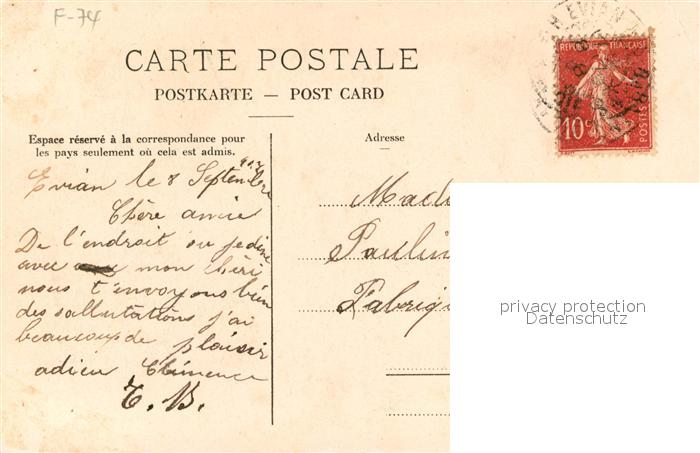 F-74
CARTE POSTALE
POSTKARTE — POST CARD
EVIAN
REPUBLIQUE FRANÇAISE
10c
POSTES
Espace réservé à la correspondance pour
les pays seulement où cela est admis.
Adresse
Evian le 8 Septembre
Chère amie
De l'endroit ou je dine
avec mon chéri
nous t'envoyons bien
des sallutations j'ai
beaucoup de plaisir
adieu Clémence
T. B.
Mad
Paulin
Fabriq
privacy protection
Datenschutz